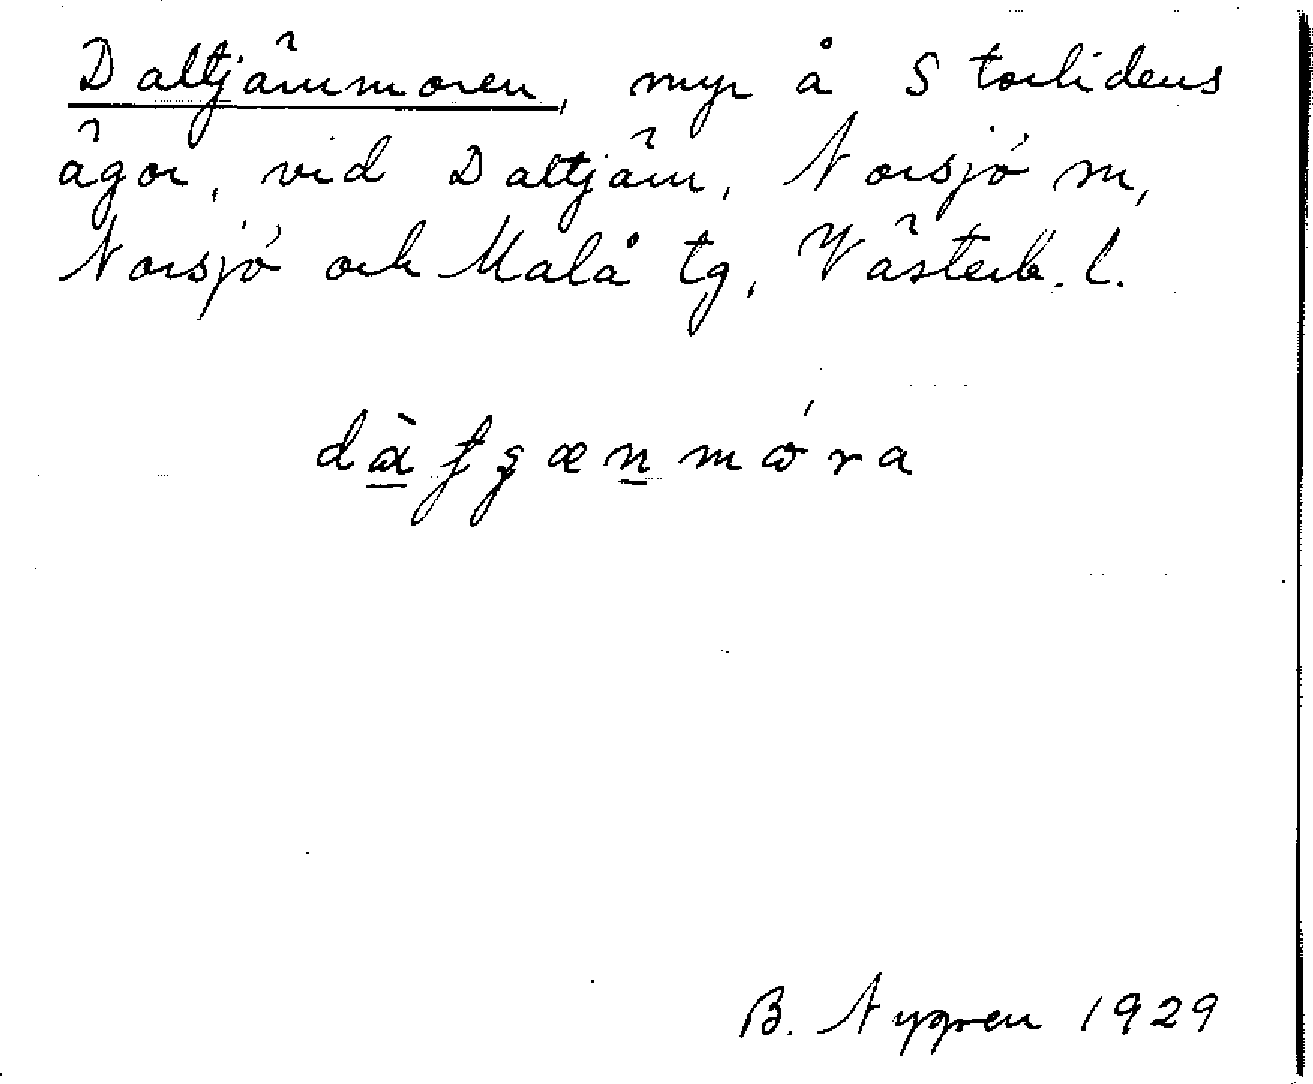 Daltjärnmoren, myr å Storlidens
ägor, vid Daltjärn, Norsjö sn,
Norsjö och Malå tg, Västerb. l.
B. Nygren 1929